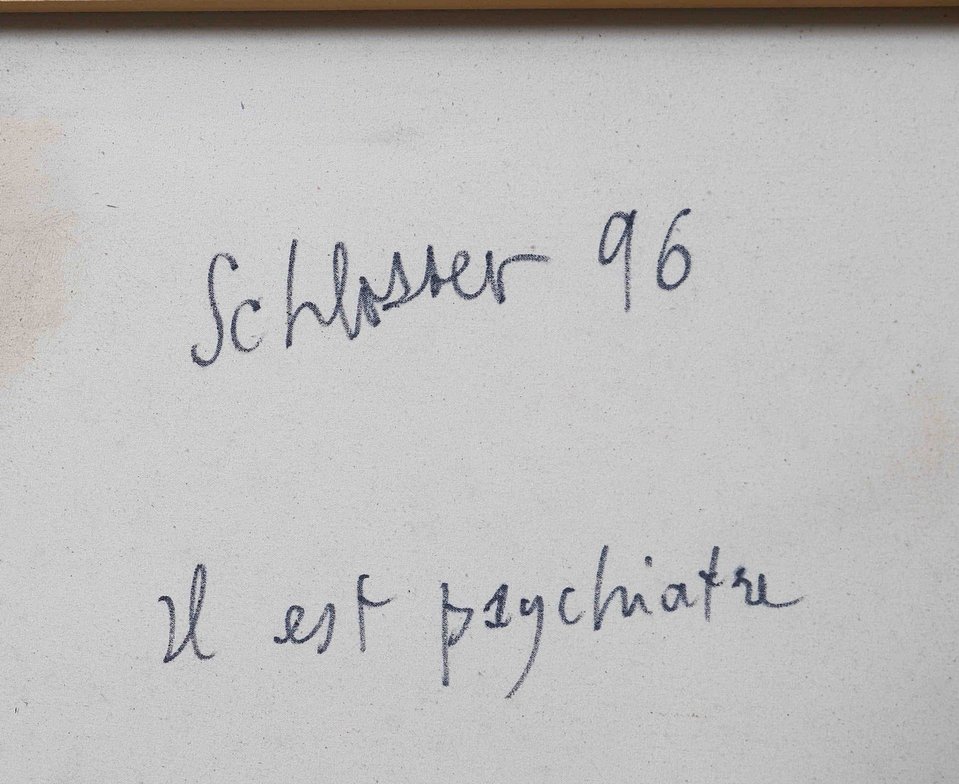 Schlosser 96
Il est psychiatre